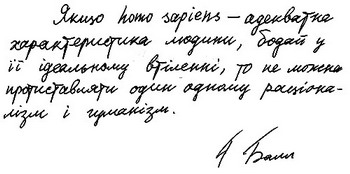 Якщо homo sapiens – адекватна
характеристика людини, бодай у
її ідеальному втіленні, то не можна
протиставляти один одному раціона-
лізм і гуманізм.
Г Балл